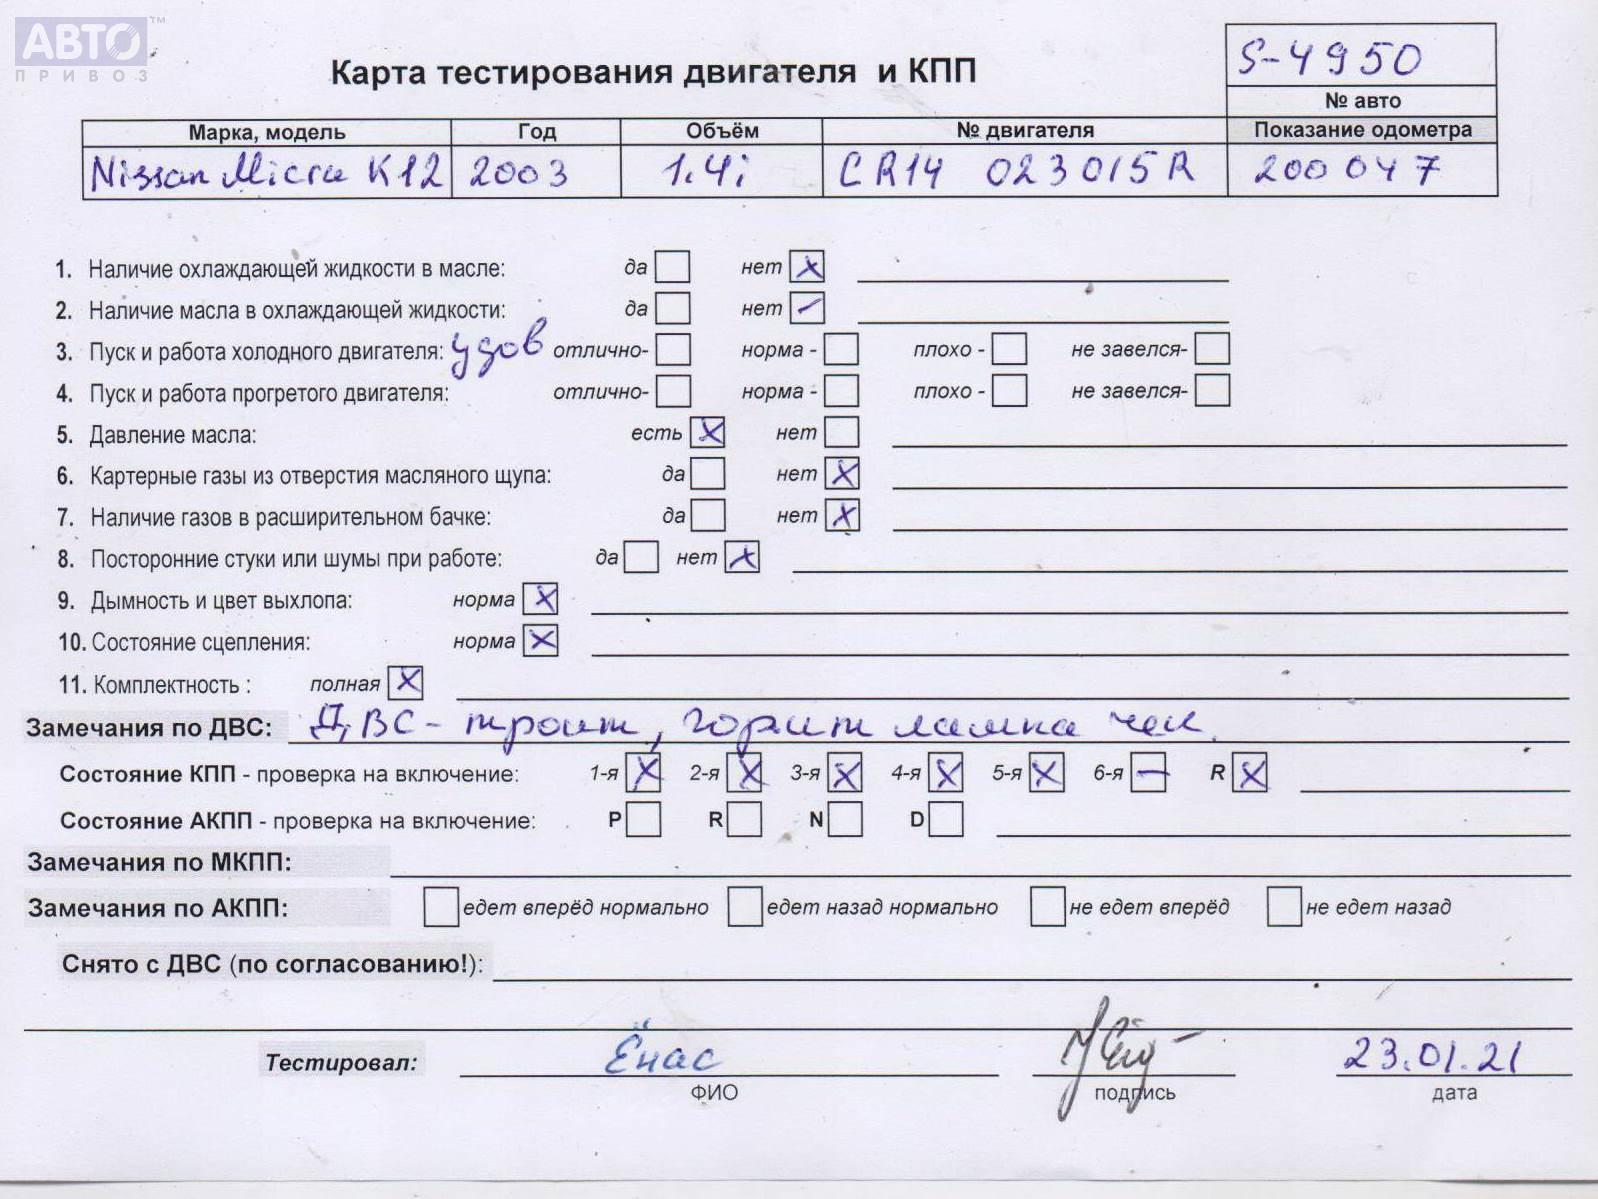 АВТО™
ПРИВОЗ
S-4950
Карта тестирования двигателя и КПП
№ авто
Марка, модель Год Объём № двигателя Показание одометра
Nissan Micra K12 2003 1.4i CR14 023015R 200047
1. Наличие охлаждающей жидкости в масле: да нет
2. Наличие масла в охлаждающей жидкости: да нет
3. Пуск и работа холодного двигателя: удов отлично- норма - плохо - не завелся-
4. Пуск и работа прогретого двигателя: отлично- норма - плохо - не завелся-
5. Давление масла: есть нет
6. Картерные газы из отверстия масляного щупа: да нет
7. Наличие газов в расширительном бачке: да нет
8. Посторонние стуки или шумы при работе: да нет
9. Дымность и цвет выхлопа: норма
10. Состояние сцепления: норма
11. Комплектность : полная
Замечания по ДВС: ДВС - троит, горит лампа чек.
Состояние КПП - проверка на включение: 1-я 2-я 3-я 4-я 5-я 6-я R
Состояние АКПП - проверка на включение: P R N D
Замечания по МКПП:
Замечания по АКПП: едет вперёд нормально едет назад нормально не едет вперёд не едет назад
Снято с ДВС (по согласованию!):
Тестировал: Ёнас 23.01.21
ФИО подпись дата